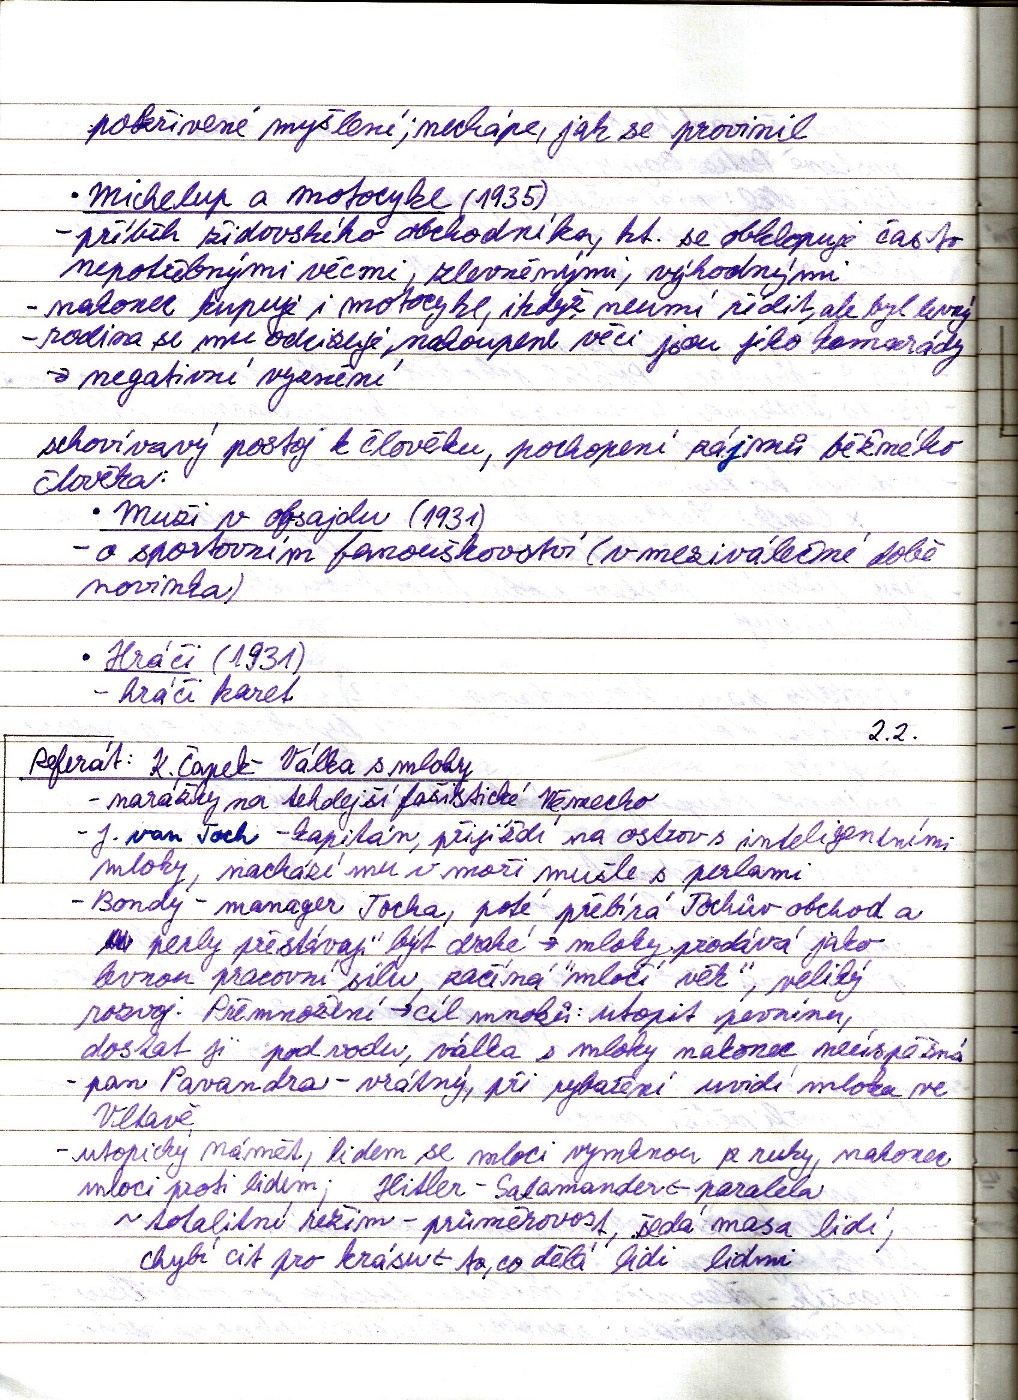 pokřivené myšlení; nechápe, jak se provinil
• Michelup a motocykl (1935)
- příběh židovského obchodníka, kt. se obklopuje často
nepotřebnými věcmi, zlevněnými, výhodnými
- nakonec kupuje i motocykl, ikdyž neumí řídit, ale byl levný
- rodina se mu odcizuje, nakoupené věci jsou jeho kamarády
→ negativní vyznění
schovívavý postoj k člověku, pochopení zájmů běžného
člověka:
• Muži v ofsajdu (1931)
- o sportovním fanouškovství (v meziválečné době
novinka)
• Hráči (1931)
- hráči karet
2.2.
Referát: K. Čapek - Válka s mloky
- narážky na tehdejší fašistické Německo
- J. van Toch - kapitán, přijíždí na ostrov s inteligentními
mloky, nachází mu v moři mušle s perlami
- Bondy - manager Tocha, poté přebírá Tochův obchod a
perly přestávají být drahé → mloky prodává jako
levnou pracovní sílu, začíná "mločí věk", veliký
rozvoj. Přemnožení → cíl mloků: utopit pevninu,
dostat ji pod vodu, válka s mloky nakonec neúspěšná
- pan Pavandra - vrátný, při rybaření uvidí mloka ve
Vltavě
- utopický námět, lidem se mloci vymknou z ruky, nakonec
mloci proti lidem; Hitler - Salamander ← paralela
~ totalitní režim - průměrovost, šedá masa lidí,
chybí cit pro krásu ← to, co dělá lidi lidmi